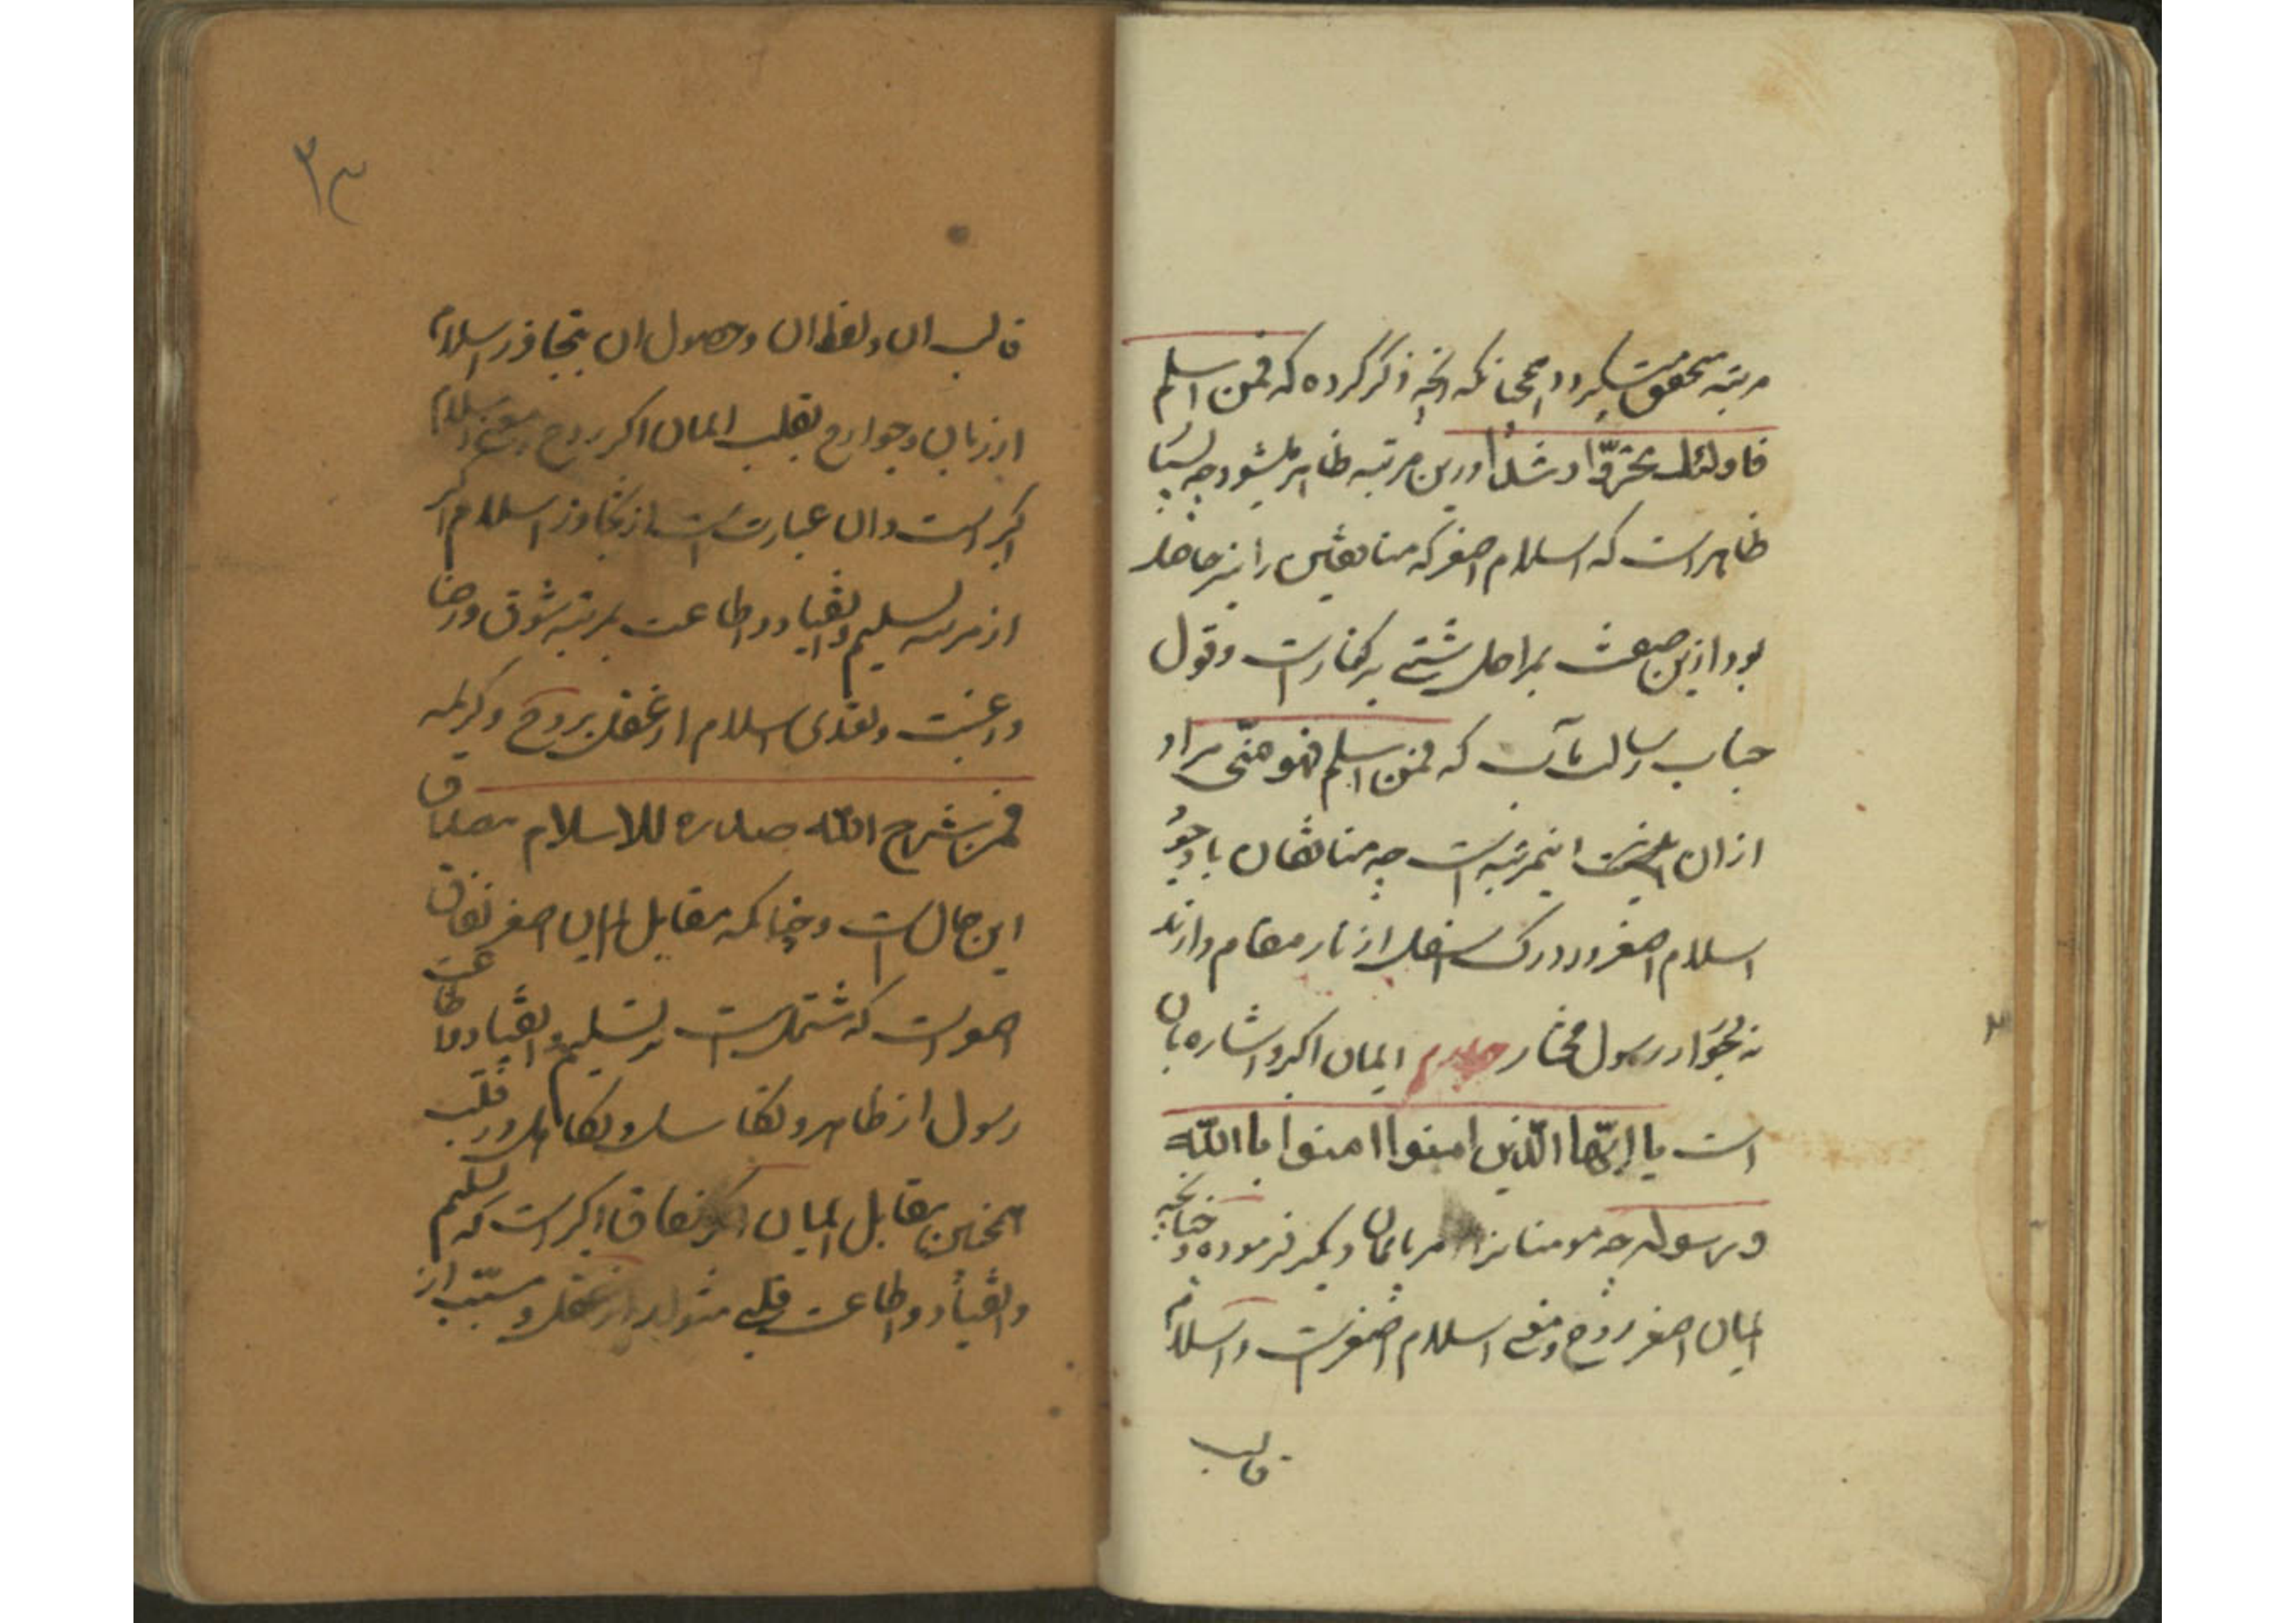 مرتبه متحقق میگردد همچنانکه آنچه ذکر کرده که فمن اسلم
فاولئک تحرّوا رشدا درین مرتبه ظاهر میشود چه بسیا
ظاهر است که اسلام اصغر که منافقین را نیز حاصل
بود ازین صفت بمراحل شتی برکنار است و قول
جناب رسالت مآب که فمن اسلم فهو منّی مراد
از ان اینمرتبه است چه منافقان باوجود
اسلام اصغر در درک اسفل از نار مقام دارند
نه بجوار رسول مختار ایمان اکبر و اشاره بان
است یا ایّها الّذین امنوا امنوا باالله
و رسوله چه مومنانرا امر بایمان دیگر فرموده و چنانچه
ایمان اصغر روح و معنی اسلام اصغر است و اسلام
قالب
٢٣
قالب ان و لفظ ان و حصول ان بتجاوز اسلام
از زبان و جوارح بقلب ایمان اکبر روح و معنی اسلام
اکبر است و ان عبارت است از تجاوز اسلام اکبر
از مرتبه تسلیم و انقیاد و اطاعت بمرتبه شوق و رضا
و رغبت و تعدی اسلام از عقل بروح و کریمه
فمن شرح الله صدره للاسلام مصداق
این حال است و چنانکه مقابل ایمان اصغر نفاق
اصغر است که مشتمل است بر تسلیم و انقیاد و اطاعت
رسول از ظاهر و تقاسل و تکاهل در قلب
همچنین مقابل ایمان اکبر نفاق اکبر است که تسلیم
و انقیاد و اطاعت قلبی متولد از عقل و مسبّب از